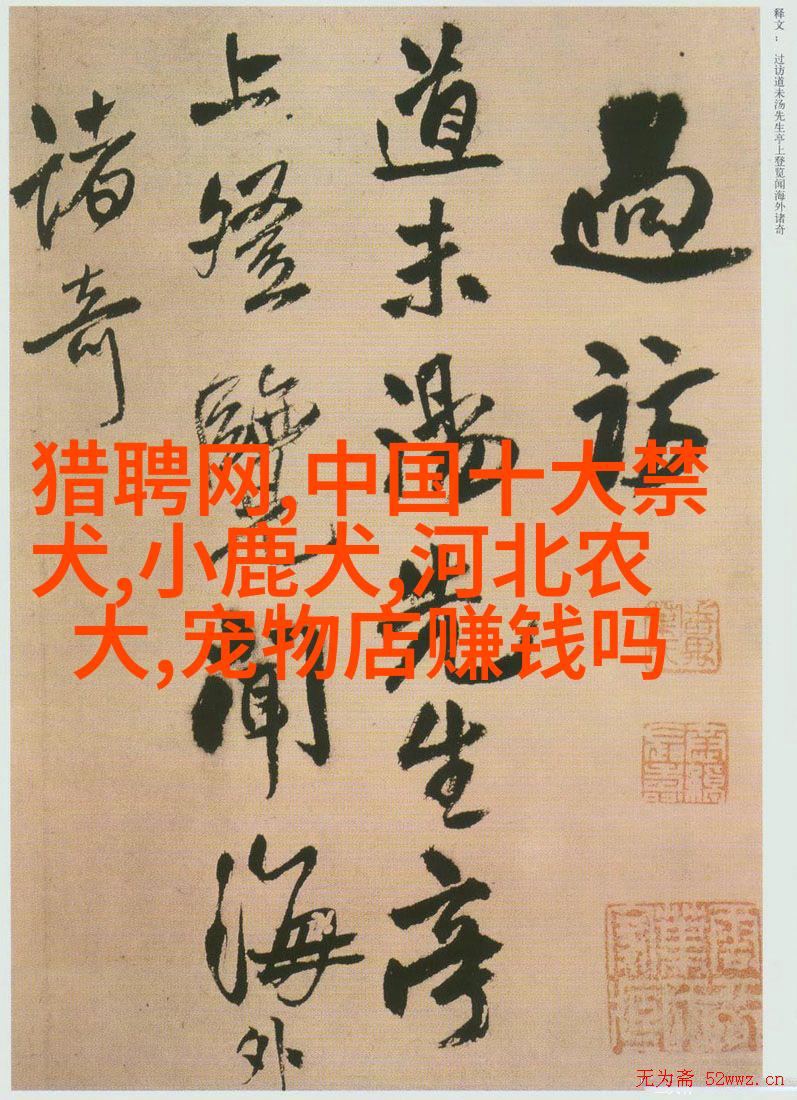 释文： 过访道未汤先生亭上登览闻海外诸奇
過訪
道未湯先生亭
上登覽聞海外
諸奇
猎聘网,中国十大禁
犬,小鹿犬,河北农
大,宠物店赚钱吗
无为斋 52wwz.cn